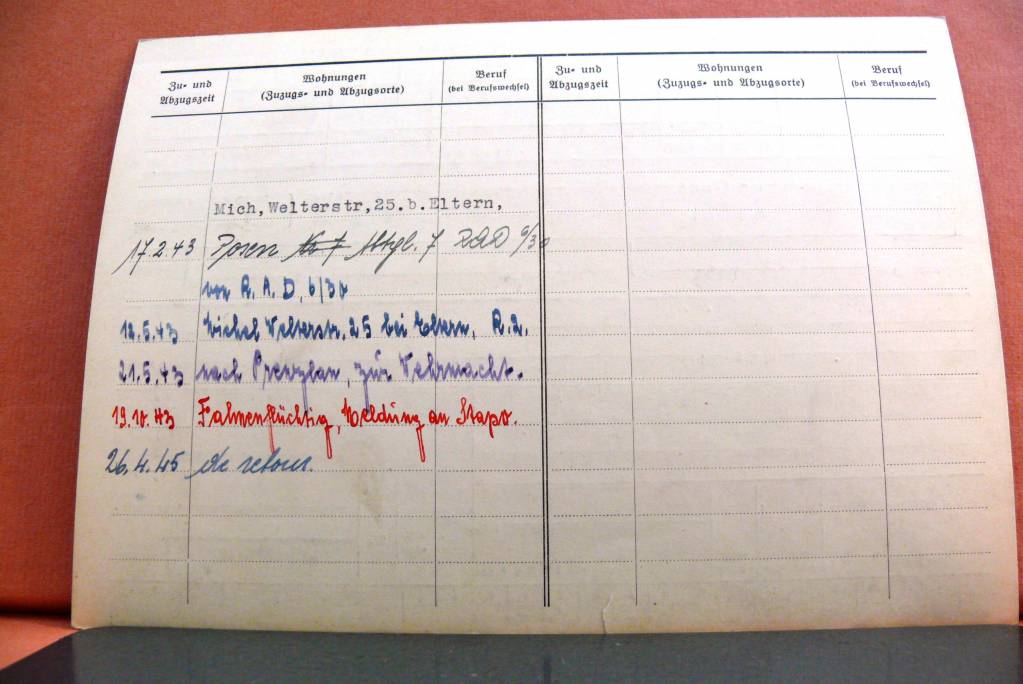 Zu- und Abzugszeit
Wohnungen
(Zuzugs- und Abzugsorte)
Beruf
(bei Berufswechsel)
Zu- und Abzugszeit
Wohnungen
(Zuzugs- und Abzugsorte)
Beruf
(bei Berufswechsel)
Mich, Welterstr, 25. b. Eltern,
17.2.43 Posen Abtgl. 7 RAD 6/30
von R. A. D, 6/30
12.5.43 Michel Welterstr. 25 bei Eltern, R. 2.
21.5.43 nach Prenzlau, zur Wehrmacht.
19.10.43 Fahnenflüchtig, Meldung an Stapo.
26.4.45 de retour.